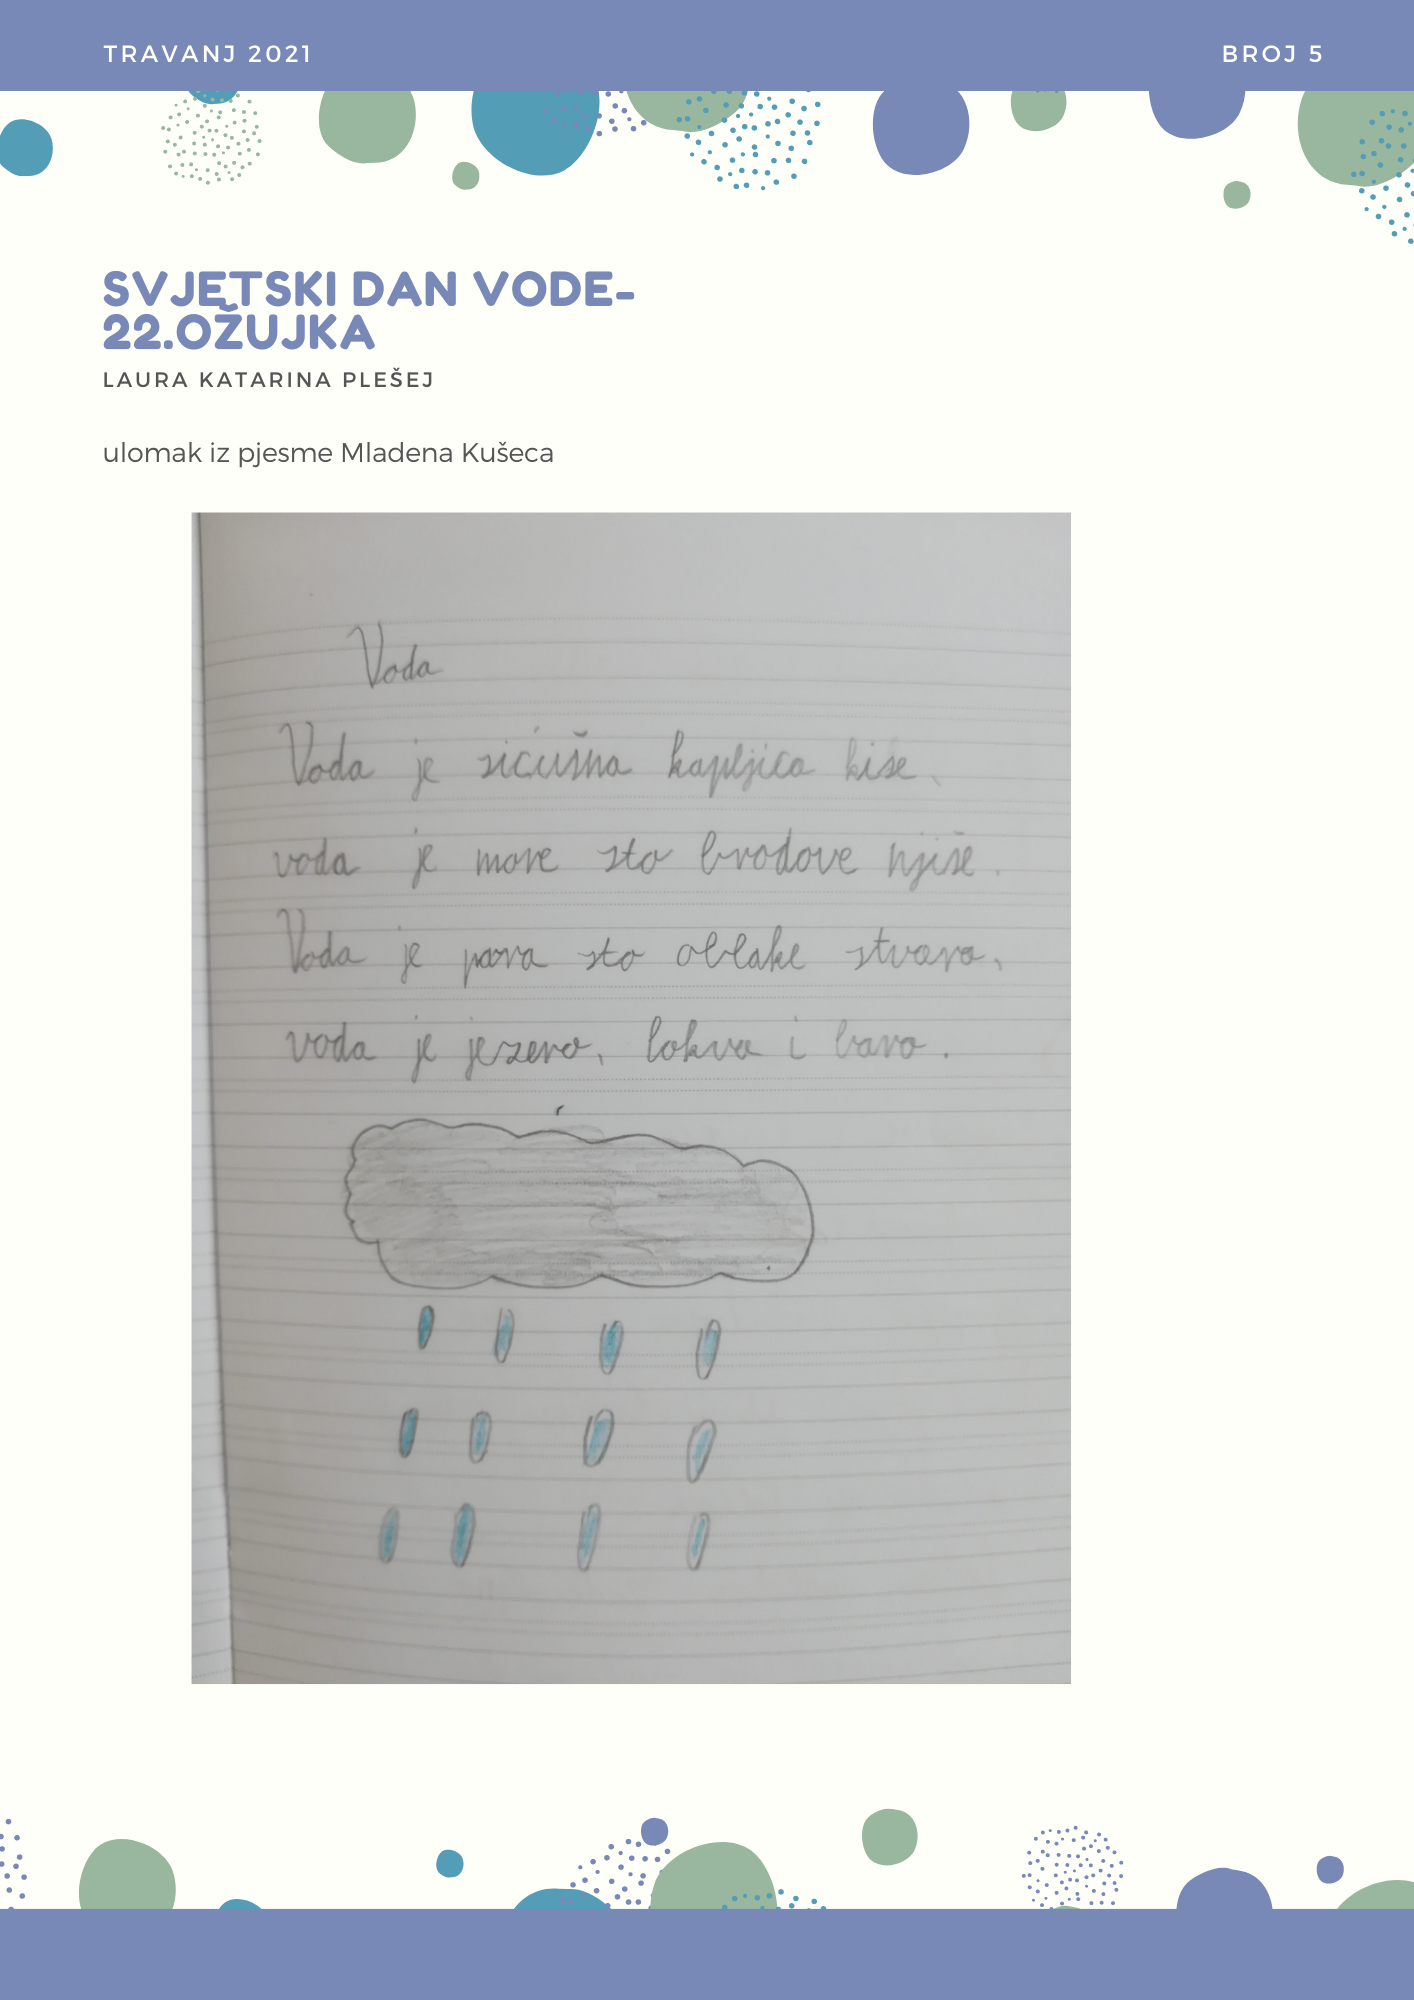 TRAVANJ 2021
BROJ 5
SVJETSKI DAN VODE-
22.OŽUJKA
LAURA KATARINA PLEŠEJ
ulomak iz pjesme Mladena Kušeca
Voda
Voda je sićušna kapljica kiše,
voda je more sto brodove njiše.
Voda je para sto oblake stvara,
voda je jezero, lokva i bara.